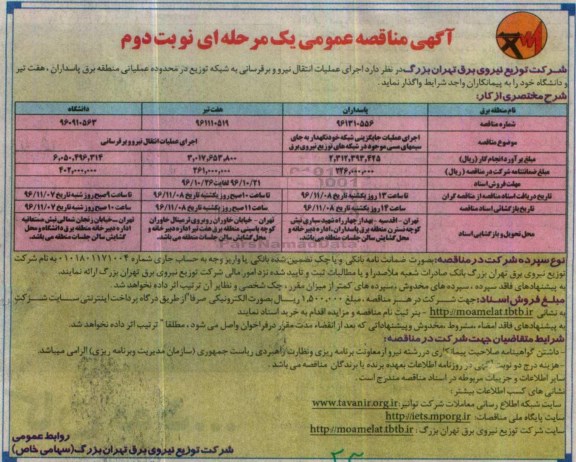 آگهی مناقصه عمومی یک مرحله ای نوبت دوم
شرکت توزیع نیروی برق تهران بزرگ در نظر دارد اجرای عملیات انتقال نیرو و برقرسانی به شبکه توزیع در محدوده عملیاتی منطقه برق پاسداران ، هفت تیر
و دانشگاه خود را به پیمانکاران واجد شرایط واگذار نماید.
شرح مختصری از کار:
نام منطقه برق پاسداران هفت تیر دانشگاه
شماره مناقصه ۹۶۱۳۱۰۵۵۶ ۹۶۱۱۱۰۵۱۹ ۹۶۰۹۱۰۵۶۳
موضوع مناقصه اجرای عملیات جایگزینی شبکه خودنگهدار به جای سیمهای مسی موجود در شبکه های توزیع نیروی برق اجرای عملیات انتقال نیرو و برقرسانی
مبلغ برآورد انجام کار (ریال) ۲,۳۱۲,۳۹۳,۴۲۵ ۳,۰۱۷,۶۵۳,۸۰۰ ۶,۰۵۰,۴۹۶,۳۱۴
مبلغ ضمانتنامه شرکت در مناقصه (ریال) ۲۲۶,۰۰۰,۰۰۰ ۲۶۱,۰۰۰,۰۰۰ ۴۰۲,۰۰۰,۰۰۰
مهلت فروش اسناد ۹۶/۱۰/۲۱ لغایت ۹۶/۱۰/۲۶
تاریخ دریافت اسناد مناقصه از مناقصه گران تا ساعت ۱۳ روز یکشنبه تاریخ ۹۶/۱۱/۰۸ تا ساعت ۱۰ صبح روز یکشنبه تاریخ ۹۶/۱۱/۰۸ تا ساعت ۹ صبح روز شنبه تاریخ ۹۶/۱۱/۰۷
تاریخ بازگشائی اسناد مناقصه ساعت ۱۴ روز یکشنبه تاریخ ۹۶/۱۱/۰۸ ساعت ۱۱ صبح روز یکشنبه تاریخ ۹۶/۱۱/۰۸ ساعت ۱۰ صبح روز شنبه تاریخ ۹۶/۱۱/۰۷
محل تحویل و بازگشایی اسناد تهران - اقدسیه - بعد از چهارراه شهید مباری نبش کوچه نسترن منطقه برق پاسداران، اداره دبیرخانه و محل گشایش سالن جلسات منطقه می باشد. تهران - خیابان خاوران روبروی ترمینال خاوران کوچه یاسمینی منطقه برق هفت تیر اداره دبیرخانه و محل گشایش سالن جلسات منطقه می باشد. تهران - خیابان زنجان شمالی نبش اداره دبیرخانه منطقه برق دانشگاه و محل گشایش سالن جلسات منطقه می باشد.
نوع سپرده شرکت در مناقصه: بصورت ضمانت نامه بانکی و یا چک تضمین شده بانکی یا واریز وجه به حساب جاری شماره ۰۱۰۱۸۰۱۱۷۱۰۰۴ به نام شرکت
توزیع نیروی برق تهران بزرگ بانک صادرات شعبه ملاصدرا و یا مطالبات ثبت و تایید شده نزد امور مالی شرکت توزیع نیروی برق تهران بزرگ ارائه نمایند.
به پیشنهادهای فاقد سپرده ، سپرده های مخدوش ، سپرده های کمتر از میزان مقرر، چک شخصی و نظایر آن ترتیب اثر داده نخواهد شد.
مبلغ فروش اسناد: جهت شرکت در هر مناقصه ، مبلغ ۱,۵۰۰,۰۰۰ ریال بصورت الکترونیکی صرفا از طریق درگاه پرداخت اینترنتی سایت شرکت
به نشانی http://moamelat.tbtb.ir - بنر ثبت نام مناقصه و مزایده اقدام به خرید اسناد نمایند
به پیشنهادهای فاقد امضاء ، مشروط ، مخدوش و پیشنهاداتی که بعد از انقضاء مدت مقرر در فراخوان واصل می شود ، مطلقا ترتیب اثر داده نخواهد شد.
شرایط متقاضیان جهت شرکت در مناقصه:
- داشتن گواهینامه صلاحیت پیمانکاری در رشته نیرو از معاونت برنامه ریزی و نظارت راهبردی ریاست جمهوری (سازمان مدیریت و برنامه ریزی) الزامی میباشد.
- هزینه درج دو نوبت آگهی در روزنامه اطلاعات بعهده برنده یا برندگان مناقصه می باشد .
سایر اطلاعات و جزییات مربوطه در اسناد مناقصه مندرج است .
نشانی های کسب اطلاعات بیشتر:
سایت شبکه اطلاع رسانی معاملات شرکت توانیر www.tavanir.org.ir
سایت پایگاه ملی مناقصات: http://iets.mporg.ir
سایت شرکت توزیع نیروی برق تهران بزرگ : http://moamelat.tbtb.ir
روابط عمومی
شرکت توزیع نیروی برق تهران بزرگ (سهامی خاص)